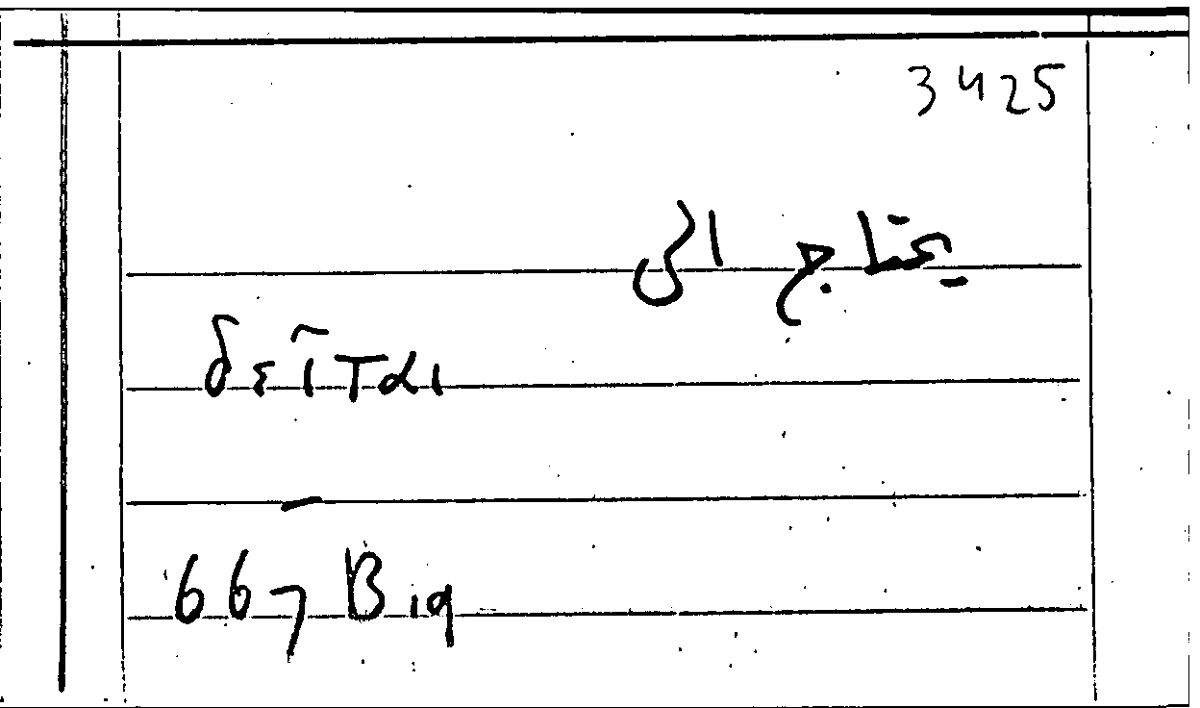 3425
يحتاج الى
δεῖται
667 B 19